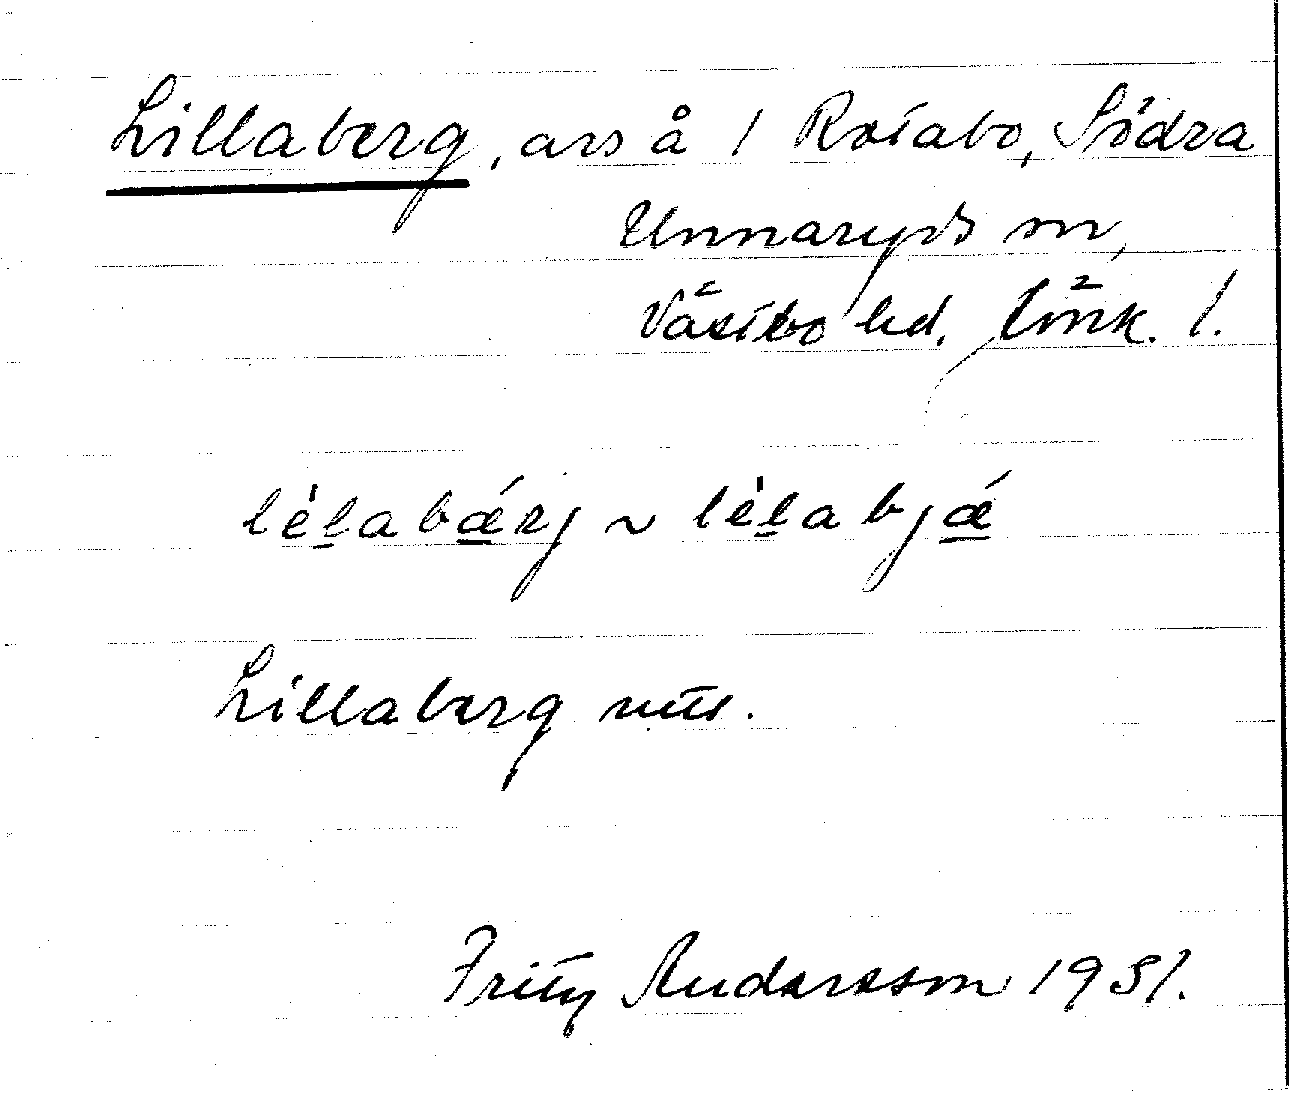 Lillaberg, avs å 1 Rotabo, Södra
Unnaryds sn,
Västbo hd, Jönk. l.
lèlabǽrj ~ lèlabjǽ
Lillaberg utt.
Fritz Andersson 1931.